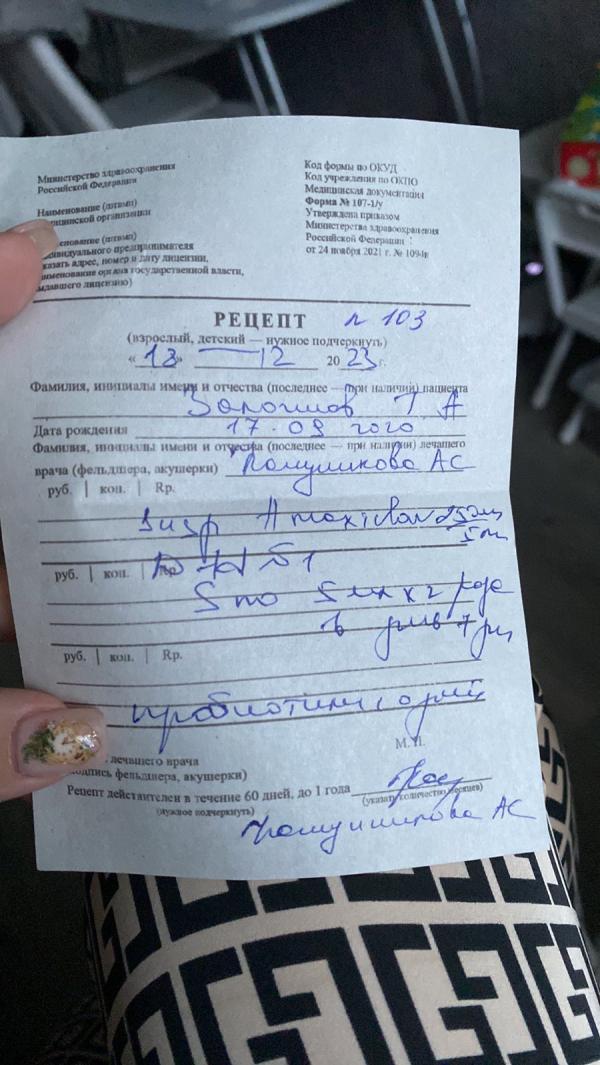 Министерство здравоохранения
Российской Федерации
Наименование (штамп)
медицинской организации
(штамп)
индивидуального предпринимателя
(указать адрес, номер и дату лицензии,
наименование органа государственной власти,
выдавшего лицензию)
Код формы по ОКУД
Код учреждения по ОКПО
Медицинская документация
Форма № 107-1/у
Утверждена приказом
Министерства здравоохранения
Российской Федерации
от 24 ноября 2021 г. № 1094н
РЕЦЕПТ n 103
(взрослый, детский — нужное подчеркнуть)
12 2023 г.
Фамилия, инициалы имени и отчества (последнее — при наличии) пациента
Т А
Дата рождения 17.09 2020
Фамилия, инициалы имени и отчества (последнее — при наличии) лечащего
врача (фельдшера, акушерки) АС
руб. | коп. | Rp.
Susp Amoxiclav
руб. | коп. | Rp.
D t d N 1
S по 5 мл х 2 раза
в день 7
руб. | коп. | Rp.
пробиотики
М.П.
лечащего врача
(подпись фельдшера, акушерки)
Рецепт действителен в течение 60 дней, до 1 года
(нужное подчеркнуть)
(указать количество месяцев)
АС